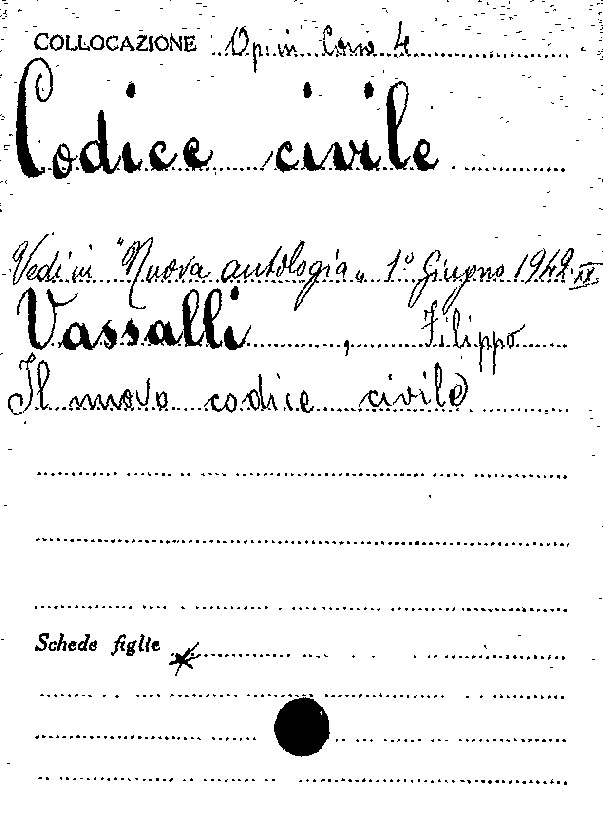 COLLOCAZIONE Op. in Corso 4
Codice civile
Vedi in "Nuova antologia„ 1° Giugno 1942. XX
Vassalli, Filippo
Il nuovo codice civile
Schede figlie